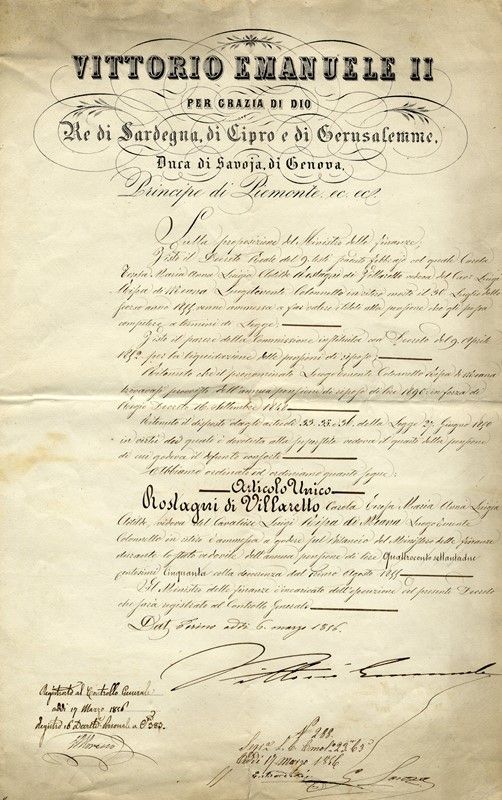 VITTORIO EMANUELE II
PER GRAZIA DI DIO
Re di Sardegna, di Cipro e di Gerusalemme,
Duca di Savoja, di Genova,
Principe di Piemonte, ec. ec.
Sulla proposizione del Ministro delle finanze;
Visto il Decreto Reale del 9 febbraio nel quale Carola
Teresa Maria Anna Luigia Clotilde Rostagni di Villaretto vedova del Cav. Luigi
Luogotenente Colonnello in ritiro morto il 30 Luglio dello
scorso anno 1855 venne ammessa a far valere i titoli alla pensione che gli possa
competere a termini di Legge;
Visto il parere della Commissione instituita con Decreto del 9 Aprile
1852 per la liquidazione delle pensioni di riposo;
Ritenuto che il prenominato Luogotenente Colonnello
provvisto dell'annua pensione di riposo di lire 1890 in forza di
Regio Decreto 16 Settembre 1848
Ritenuto il disposto dagli articoli 33. 35 e 36. della Legge 27 Giugno 1850
in virtù dei quali è devoluta alla vedova il quarto della pensione
di cui godeva il defunto consorte
Abbiamo ordinato ed ordiniamo quanto segue:
Articolo Unico
Rostagni di Villaretto Carola Teresa Maria Anna Luigia
Clotilde, vedova del Cavaliere Luigi Luogotenente
Colonnello in ritiro è ammessa a godere sul bilancio del Ministero delle finanze
durante lo stato vedovile dell'annua pensione di lire Quattrocento settantadue
centesimi cinquanta colla decorrenza dal primo Agosto 1855
Il Ministro delle finanze è incaricato dell'esecuzione del presente Decreto
che sarà registrato al Controllo Generale
Dat. Torino addì 6. marzo 1856.
Vittorio Emanuele
Registrato al Controllo Generale
addì 17 Marzo 1856
Registro 16 Decreti Personale a C. 383.
Moreno
N° 288
addì 17 Marzo 1856